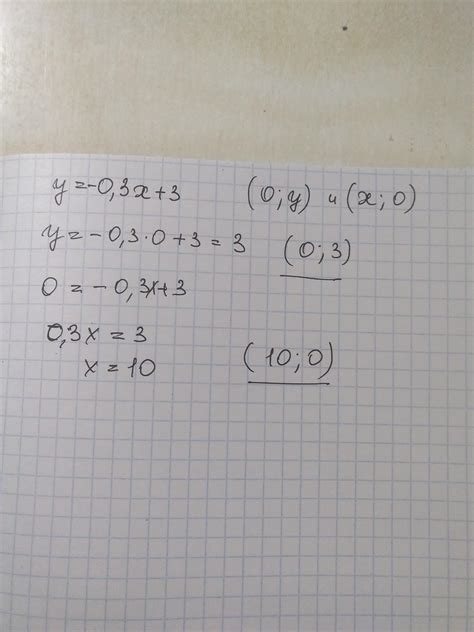 y=-0,3x+3 (0;y) и (x;0)
y=-0,3·0+3=3 (0;3)
0=-0,3x+3
0,3x=3
x=10 (10;0)